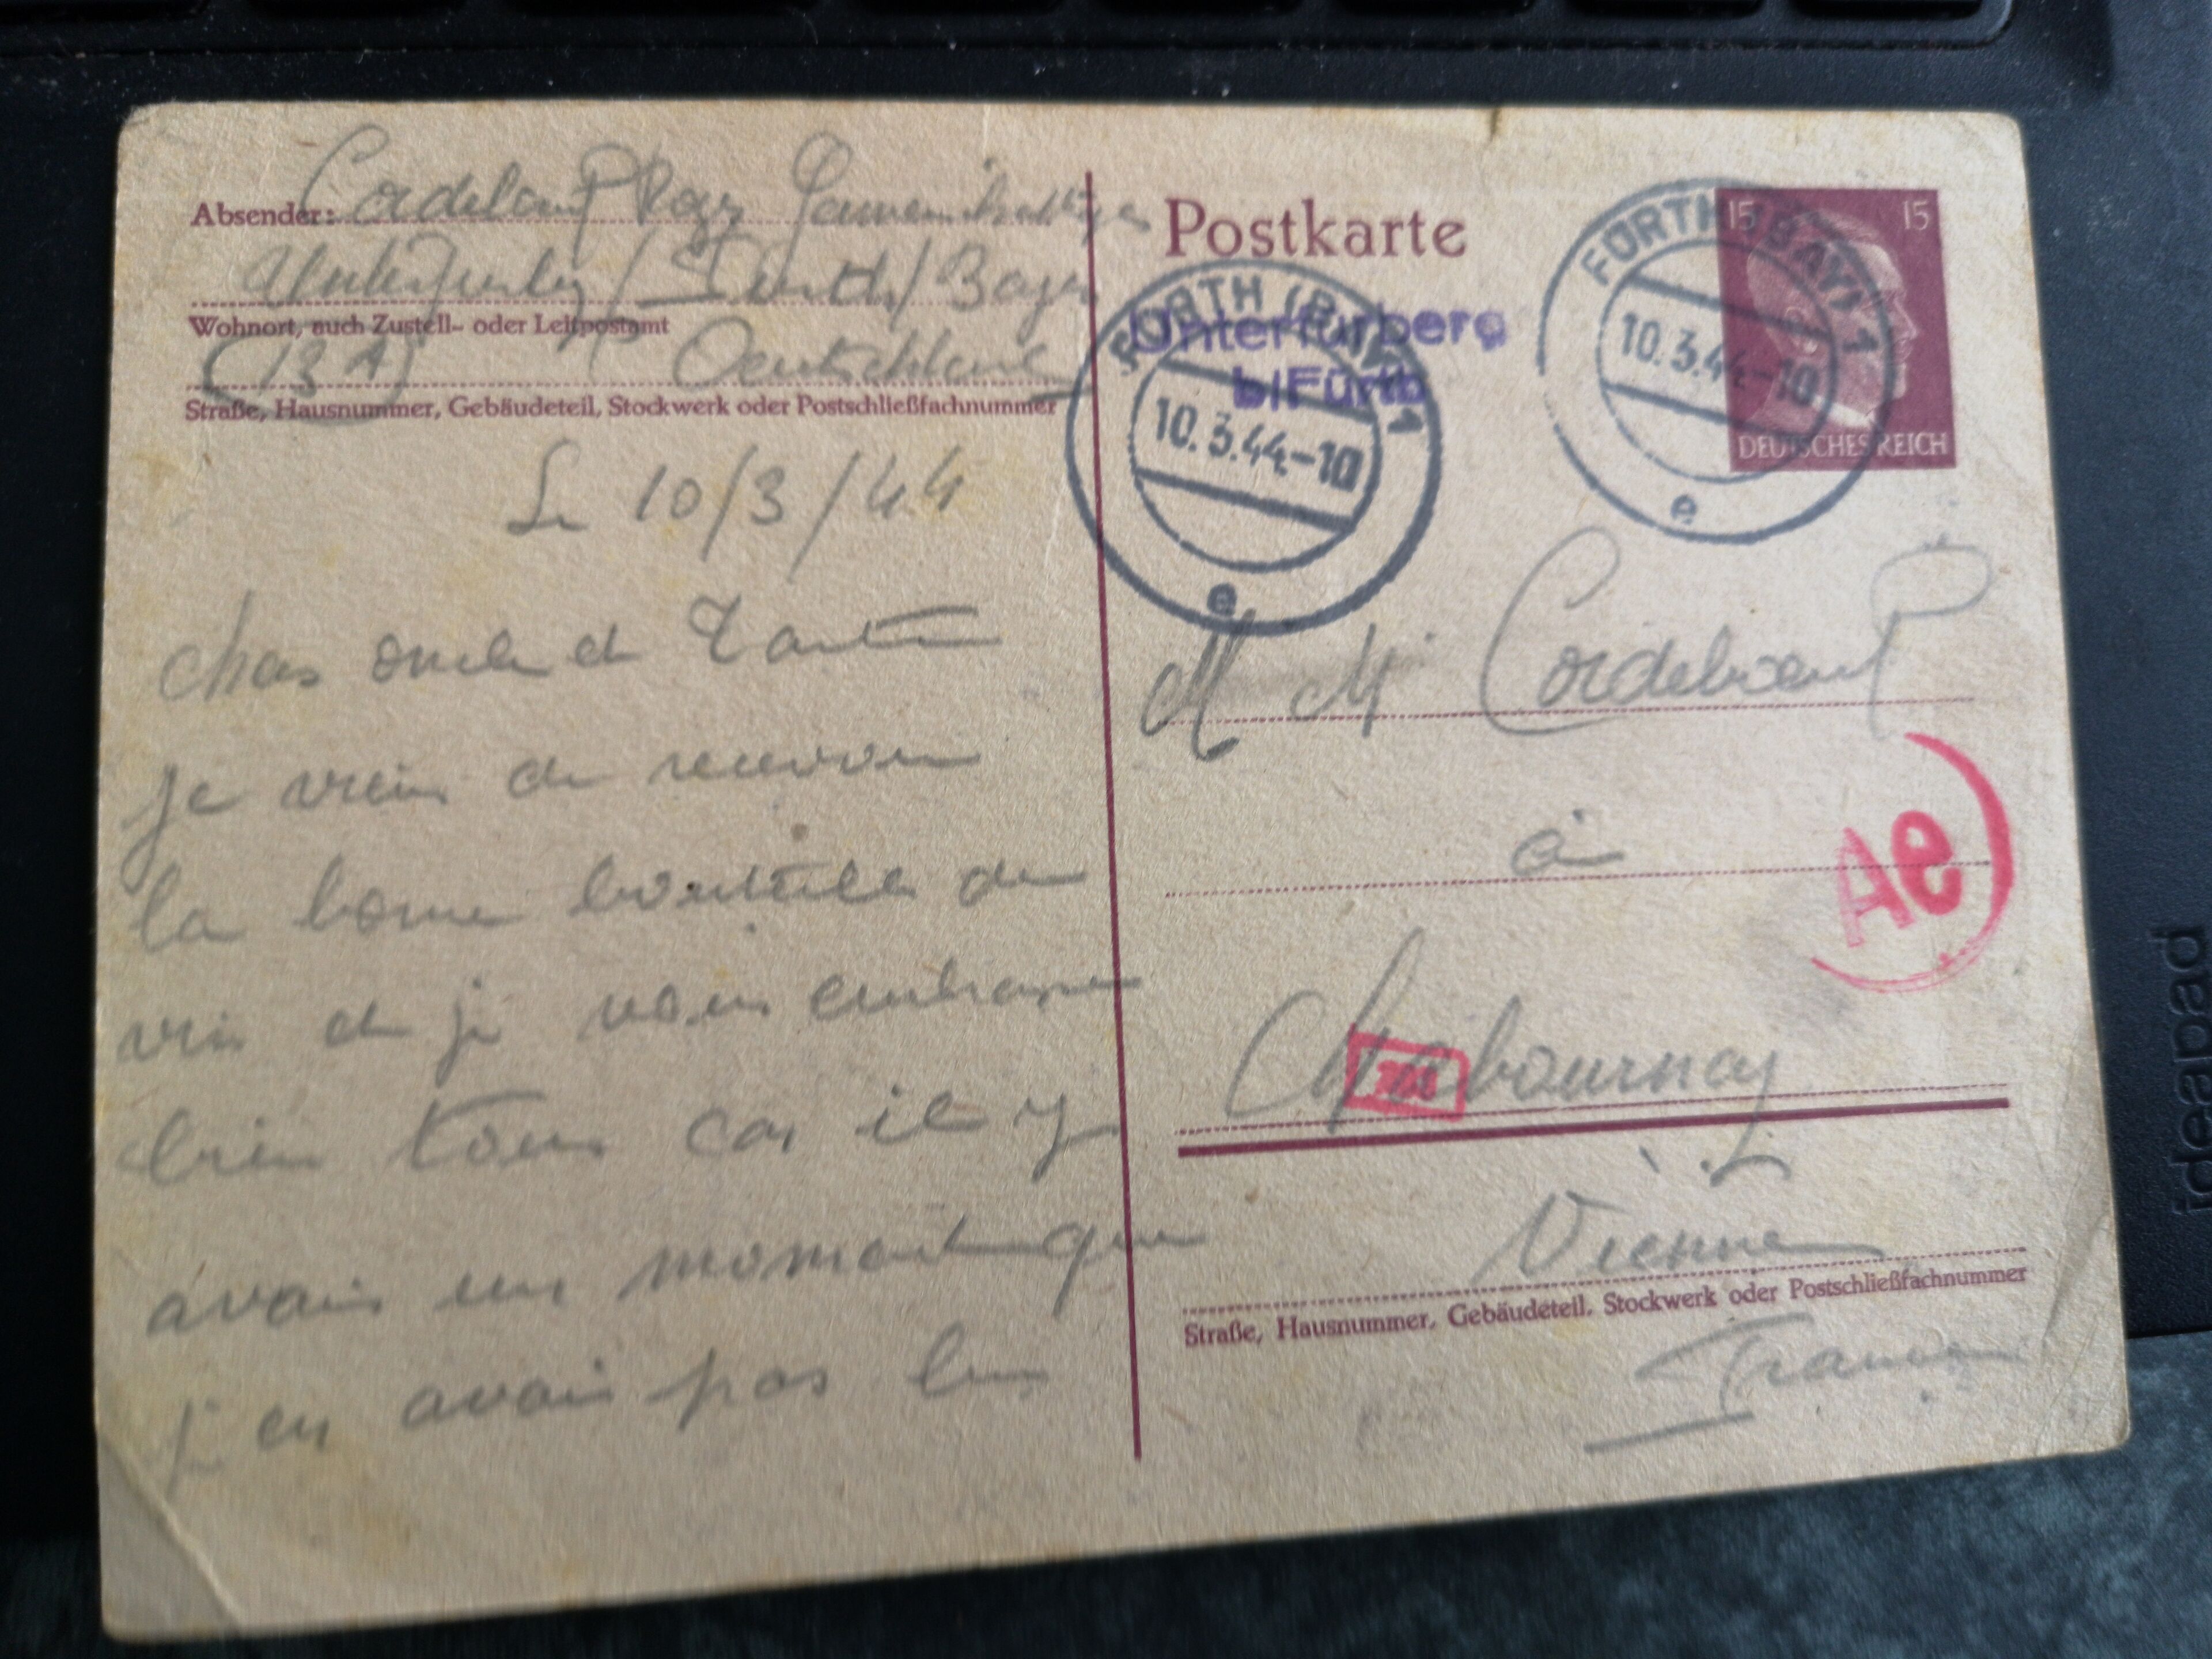 Absender: Cordeboeuf Roger
Unterfurberg / Fürth / Bayern
Wohnort, auch Zustell- oder Leitpostamt
(13A) Deutschland
Straße, Hausnummer, Gebäudeteil, Stockwerk oder Postschließfachnummer
Le 10/3/44
chers oncle et Tante
je viens de recevoir
la bonne bouteille de
vin et je vous embrasse
bien tous car il y
avais un moment que
j en avais pas bu
Postkarte
15 15
DEUTSCHES REICH
FÜRTH (BAY) 1
10.3.44-10
e
FÜRTH (BAY) 1
10.3.44-10
e
Unterfürberg
b/Fürth
M M Cordeboeuf
à
Ae
Chabournay
Vienne
Straße, Hausnummer, Gebäudeteil, Stockwerk oder Postschließfachnummer
France
ideapad